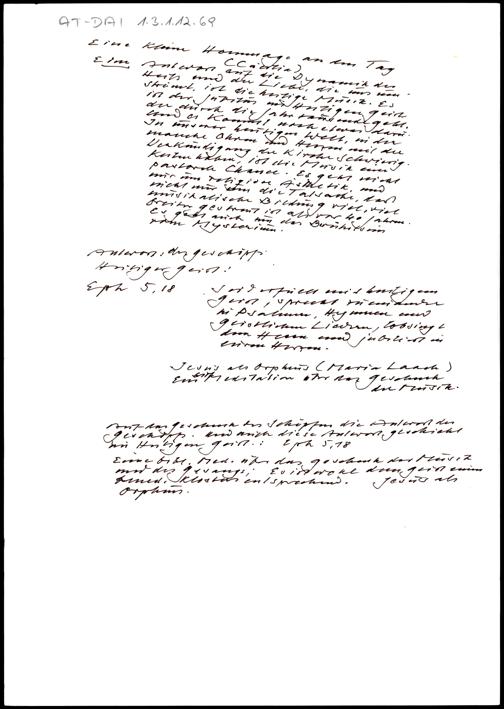 AT-DAI 1.3.1.12.69
Eine kleine Hommage an den Tag
(Cäcilia)
Eine Antwort auf die Dynamik des
Heils und der Liebe, die uns um-
strömt, ist die heilige Musik. Es
ist der Jubilus im Heiligen Geist
der durch die Jahrtausende geht.
und es kommt noch etwas dazu:
In unserer heutigen Welt, in der
manche Ohren und Herzen mit der
Verkündigung der Kirche Schwierig-
keiten haben, ist die Musik eine
pastorale Chance. Es geht nicht
nur um religiöse Ästhetik, und
nicht nur um die Tatsache, daß
musikalische Bildung viel, viel
breiter gestreut ist als vor 40 Jahren.
Es geht auch um das Berührtsein
vom Mysterium.
Antwort des Geschöpfs
Heiliger Geist:
Eph 5,18 Seid erfüllt mit heiligem
Geist, sprecht zueinander
in Psalmen, Hymnen und
geistlichen Liedern, lobsingt
dem Herrn und jubiliert in
euren Herzen.
Jesus als Orpheus (Maria Laach)
Eine Meditation über das Geschenk
der Musik.
Auf das Geschenk des Schöpfers die Antwort des
Geschöpfs. und auch diese Antwort geschieht
im Heiligen Geist: Eph 5,18
Eine bibl. Med. über das Geschenk der Musik
und des Gesangs; Es ist wohl dem Geist eines
bened. Klosters entsprechend. Jesus als
Orpheus.